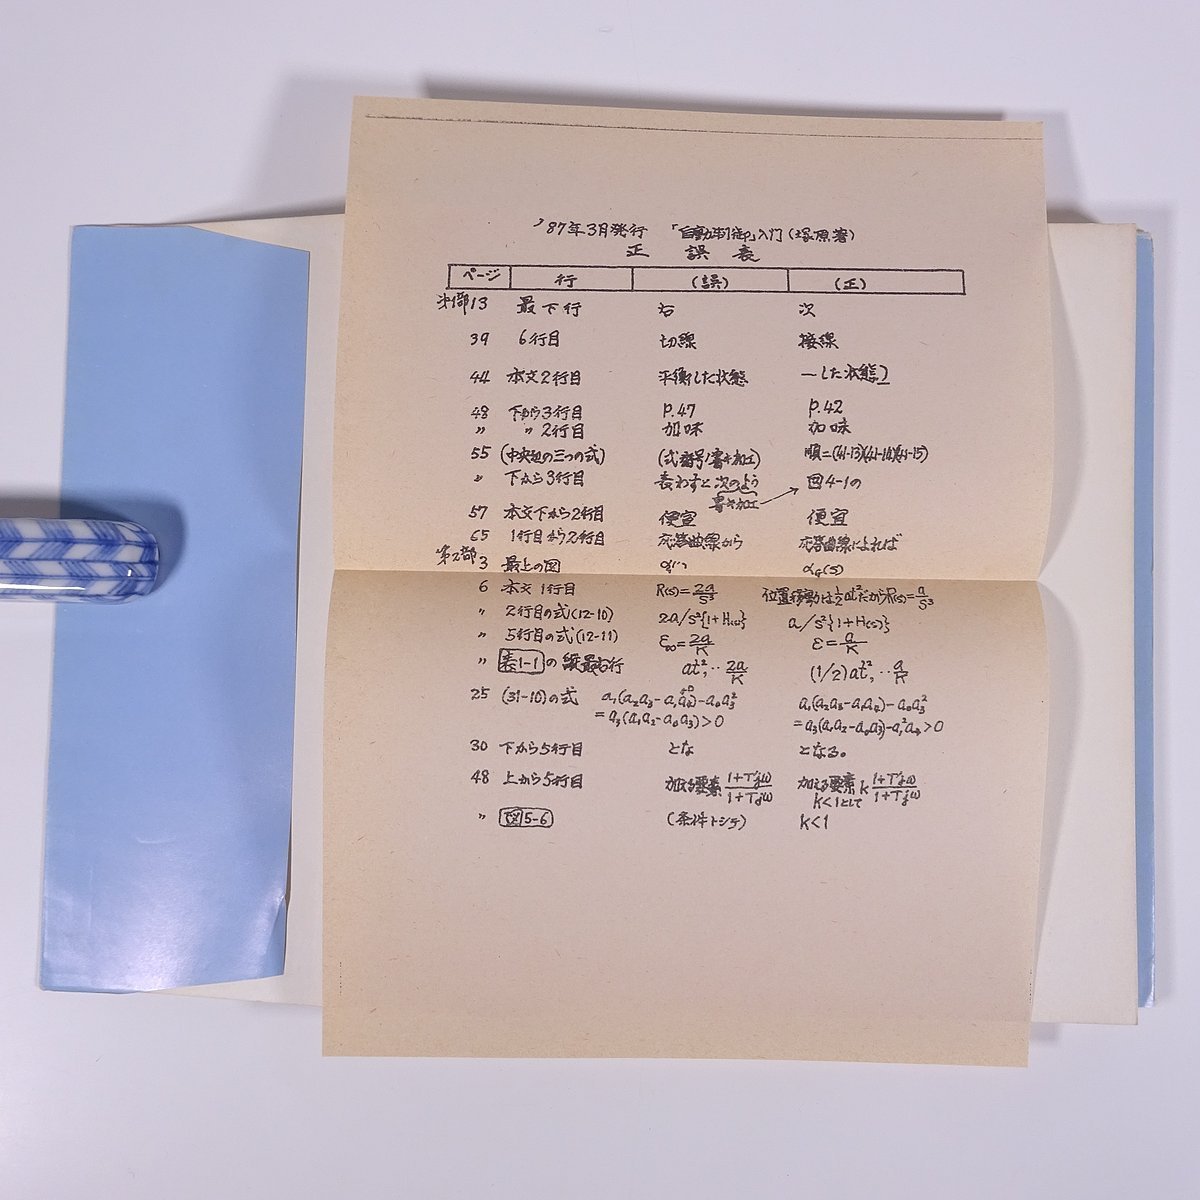 '87年3月発行 「自動制御」入門(塚原著)
正 誤 表
ページ 行 (誤) (正)
第1部13 最下行 右 次
39 6行目 切線 接線
44 本文2行目 平衡した状態 ーした状態」
48 下から3行目 P.47 P.42
〃 〃2行目 加味 加味
55 (中央辺の三つの式) (式番号書き加え) 順=(41-13)(41-14)(41-15)
〃 下から3行目 表わすと次のよう 図4-1の
書き加え
57 本文下から2行目 便宜 便宜
65 1行目から2行目 応答曲線から 応答曲線によれば
第2部3 最上の図 αG(s)
6 本文1行目 R(s)=2a/S³ 位置移動は½at²だからR(s)=a/S³
〃 2行目の式(12-10) 2a/S²{1+H(s)} a/S²{1+H(s)}
〃 5行目の式(12-11) ε∞=2a/K ε=a/K
〃 表1-1の縦最右行 at², ‥ 2a/K (1/2)at², ‥ a/K
25 (31-10)の式 a₁(a₂a₃-a₁a₄)-a₀a₃² a₁(a₂a₃-a₁a₄)-a₀a₃²
=a₃(a₁a₂-a₀a₃)>0 =a₃(a₁a₂-a₀a₃)-a₁²a₄>0
30 下から5行目 とな となる。
48 上から5行目 加える要素 1+T'jω/1+Tjω 加える要素 k 1+T'jω/1+Tjω
k<1として
〃 図5-6 (条件トシテ) k<1